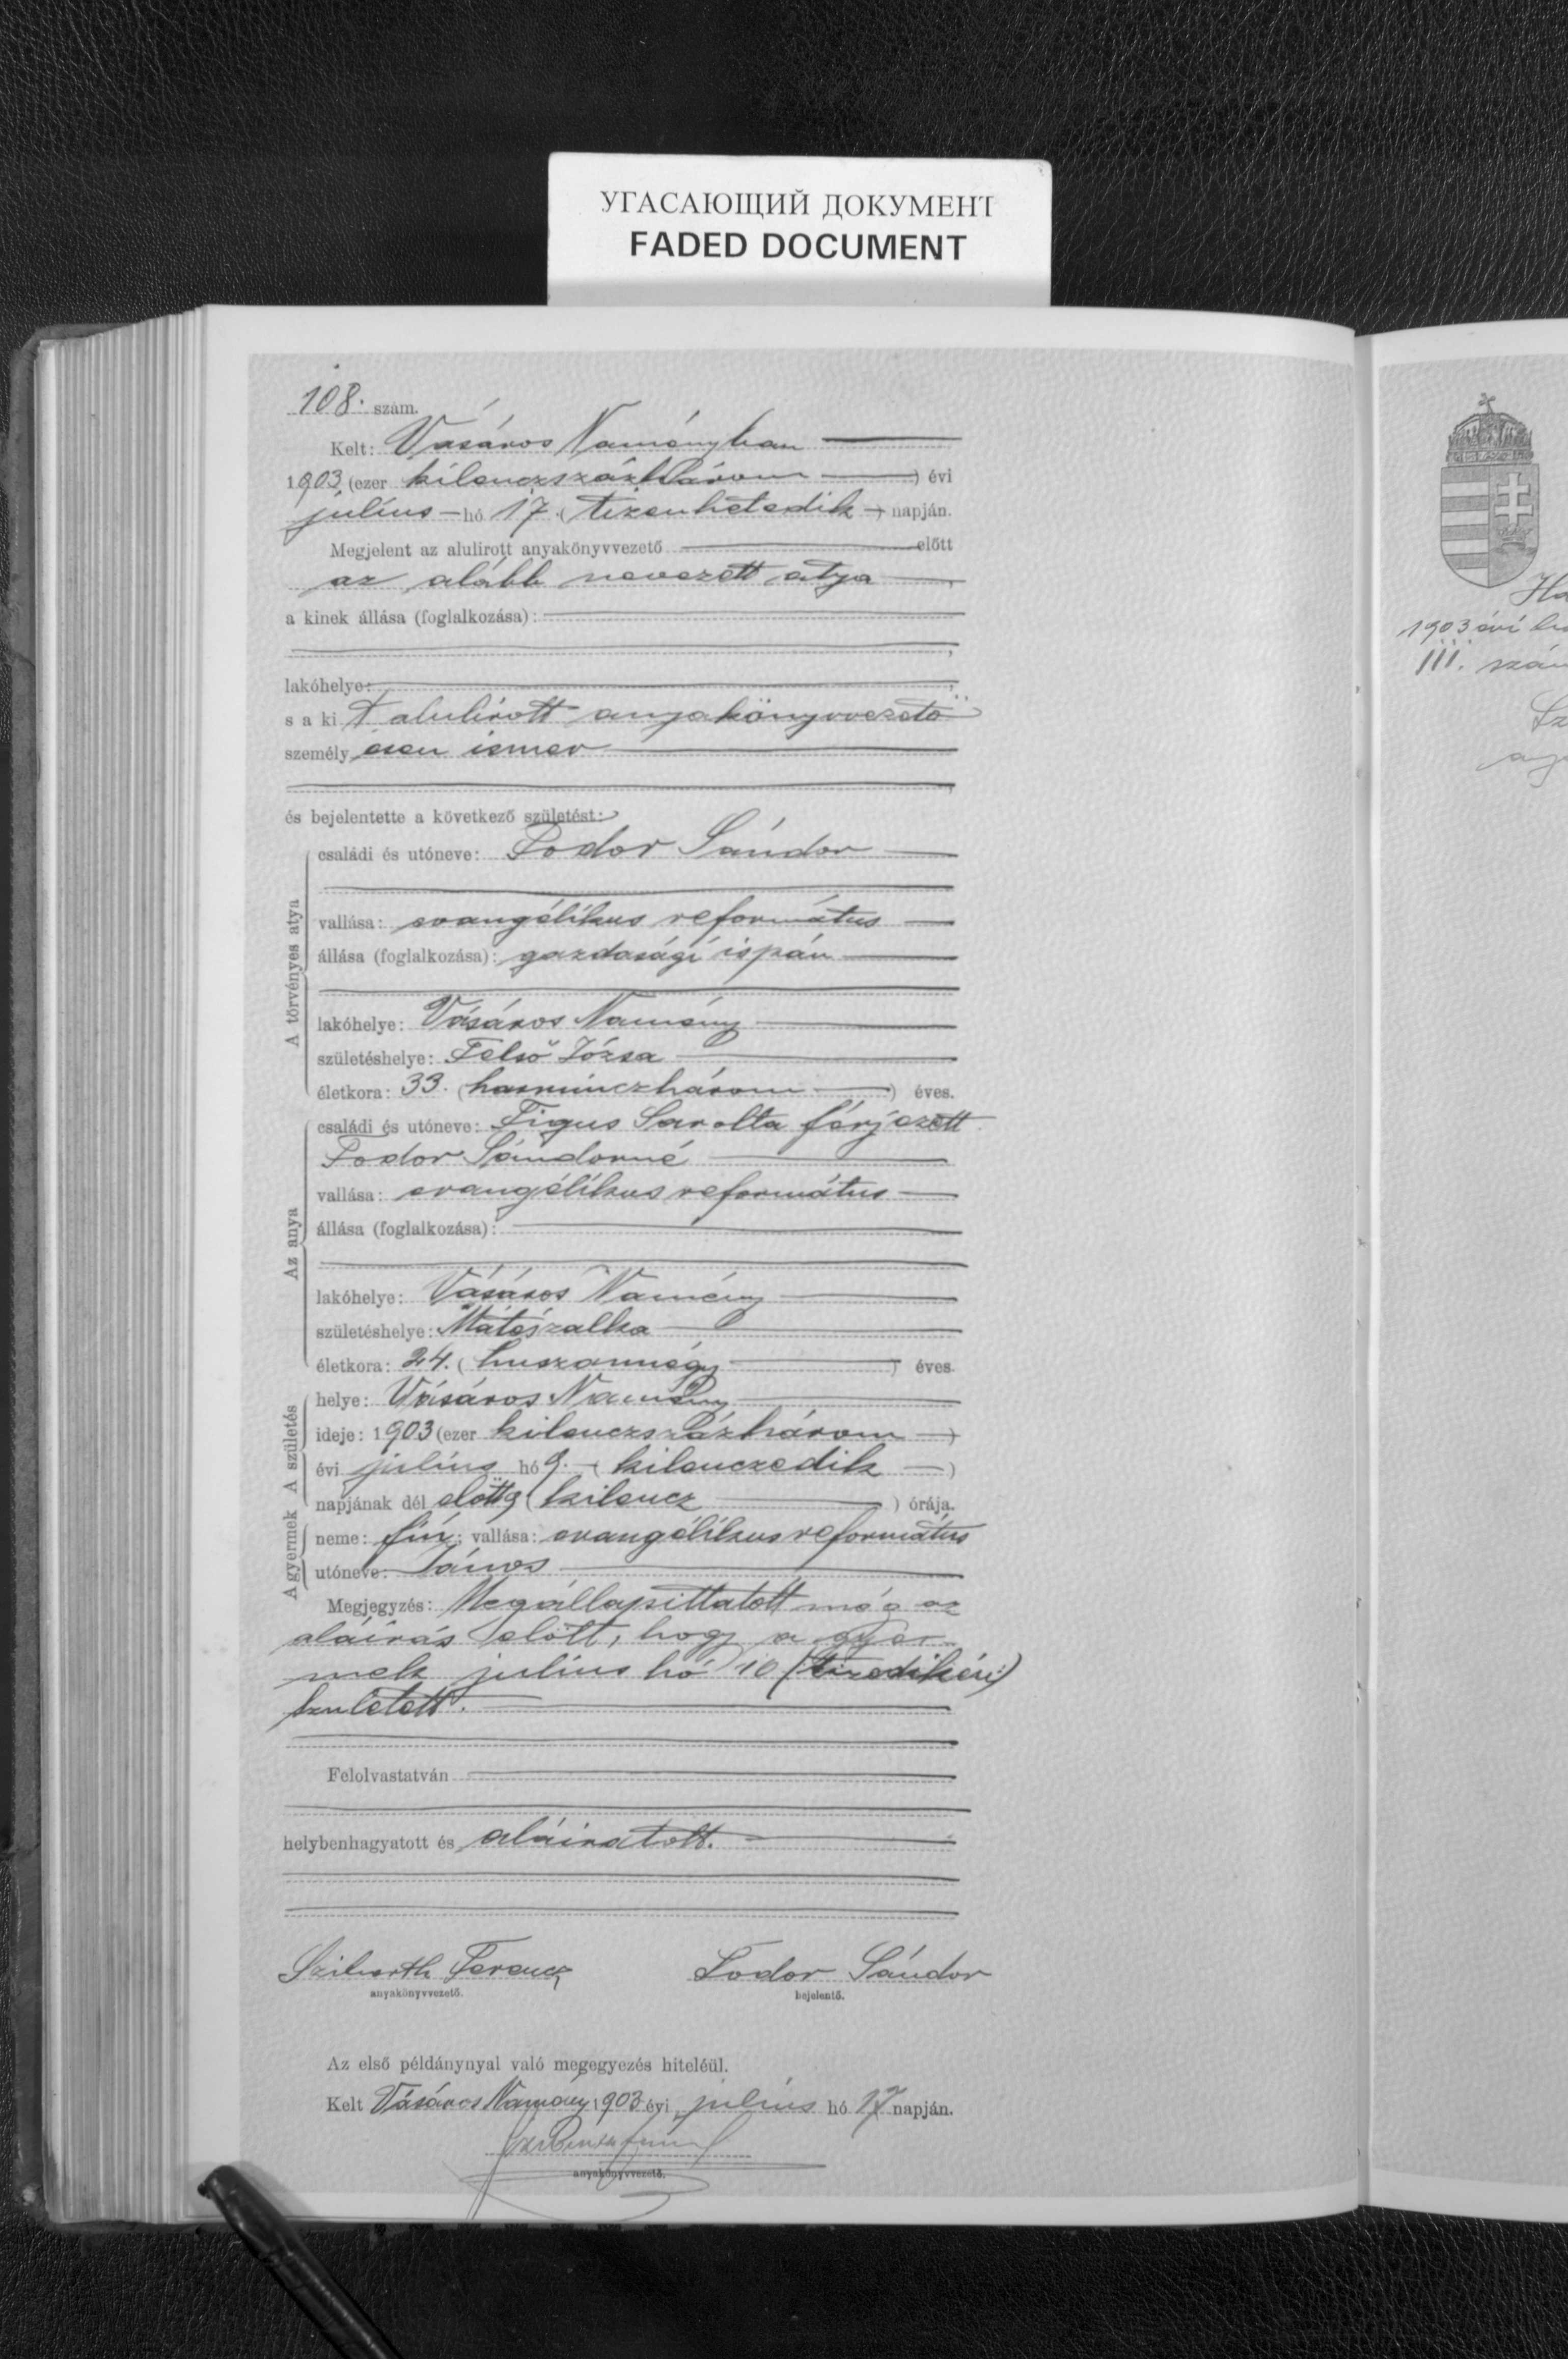 УГАСАЮЩИЙ ДОКУМЕНТ
FADED DOCUMENT
108. szám.
Kelt: Vásáros Naményban
1903 (ezer kilenczszázhárom) évi
július hó 17. (tizenhetedik) napján.
Megjelent az alulirott anyakönyvvezető előtt
az alább nevezett atya,
a kinek állása (foglalkozása):
lakóhelye:
s a ki alulírott anyakönyvvezető
személyesen ismer
és bejelentette a következő születést:
A törvényes atya
családi és utóneve: Fodor Sándor
vallása: evangélikus református
állása (foglalkozása): gazdasági ispán
lakóhelye: Vásáros Namény
születéshelye: Felső Józsa
életkora: 33. (harminczhárom) éves.
Az anya
családi és utóneve: Figus Sarolta férjezett
Fodor Sándorné
vallása: evangélikus református
állása (foglalkozása):
lakóhelye: Vásáros Namény
születéshelye: Mátészalka
életkora: 24. (huszonnégy) éves.
A születés
helye: Vásáros Namény
ideje: 1903 (ezer kilenczszázhárom)
évi július hó 9. (kilenczedik)
napjának dél előtt 9 (kilencz) órája.
A gyermek
neme: fiú; vallása: evangélikus református
utóneve: János
Megjegyzés: Megállapíttatott még az
aláírás előtt, hogy a gyer-
mek július hó 10 (tizedikén)
született.
Felolvastatván
helybenhagyatott és aláíratott.
Ferencz Fodor Sándor
anyakönyvvezető. bejelentő.
Az első példánynyal való megegyezés hiteléül.
Kelt Vásáros Namény 1903 évi július hó 17 napján.
anyakönyvvezető.
1903 évi
III.